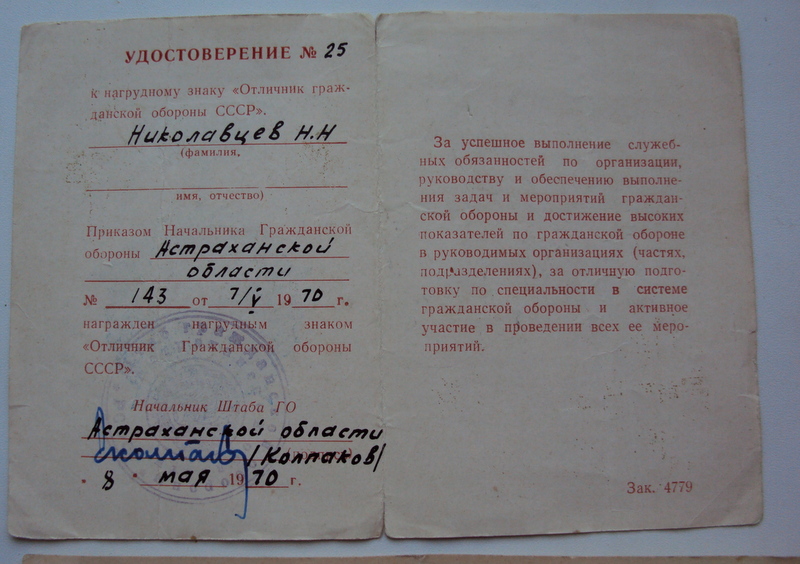 УДОСТОВЕРЕНИЕ № 25
к нагрудному знаку «Отличник граж-
данской обороны СССР».
Николавцев Н.Н
(фамилия,
имя, отчество)
Приказом Начальника Гражданской
обороны Астраханской
области
№ 143 от 7/V 1970 г.
награжден нагрудным знаком
«Отличник Гражданской обороны
СССР».
Начальник Штаба ГО
Астраханской области
/Колпаков/
8 мая 1970 г.
За успешное выполнение служеб-
ных обязанностей по организации,
руководству и обеспечению выполне-
ния задач и мероприятий граждан-
ской обороны и достижение высоких
показателей по гражданской обороне
в руководимых организациях (частях,
подразделениях), за отличную подго-
товку по специальности в системе
гражданской обороны и активное
участие в проведении всех ее меро-
приятий.
Зак. 4779